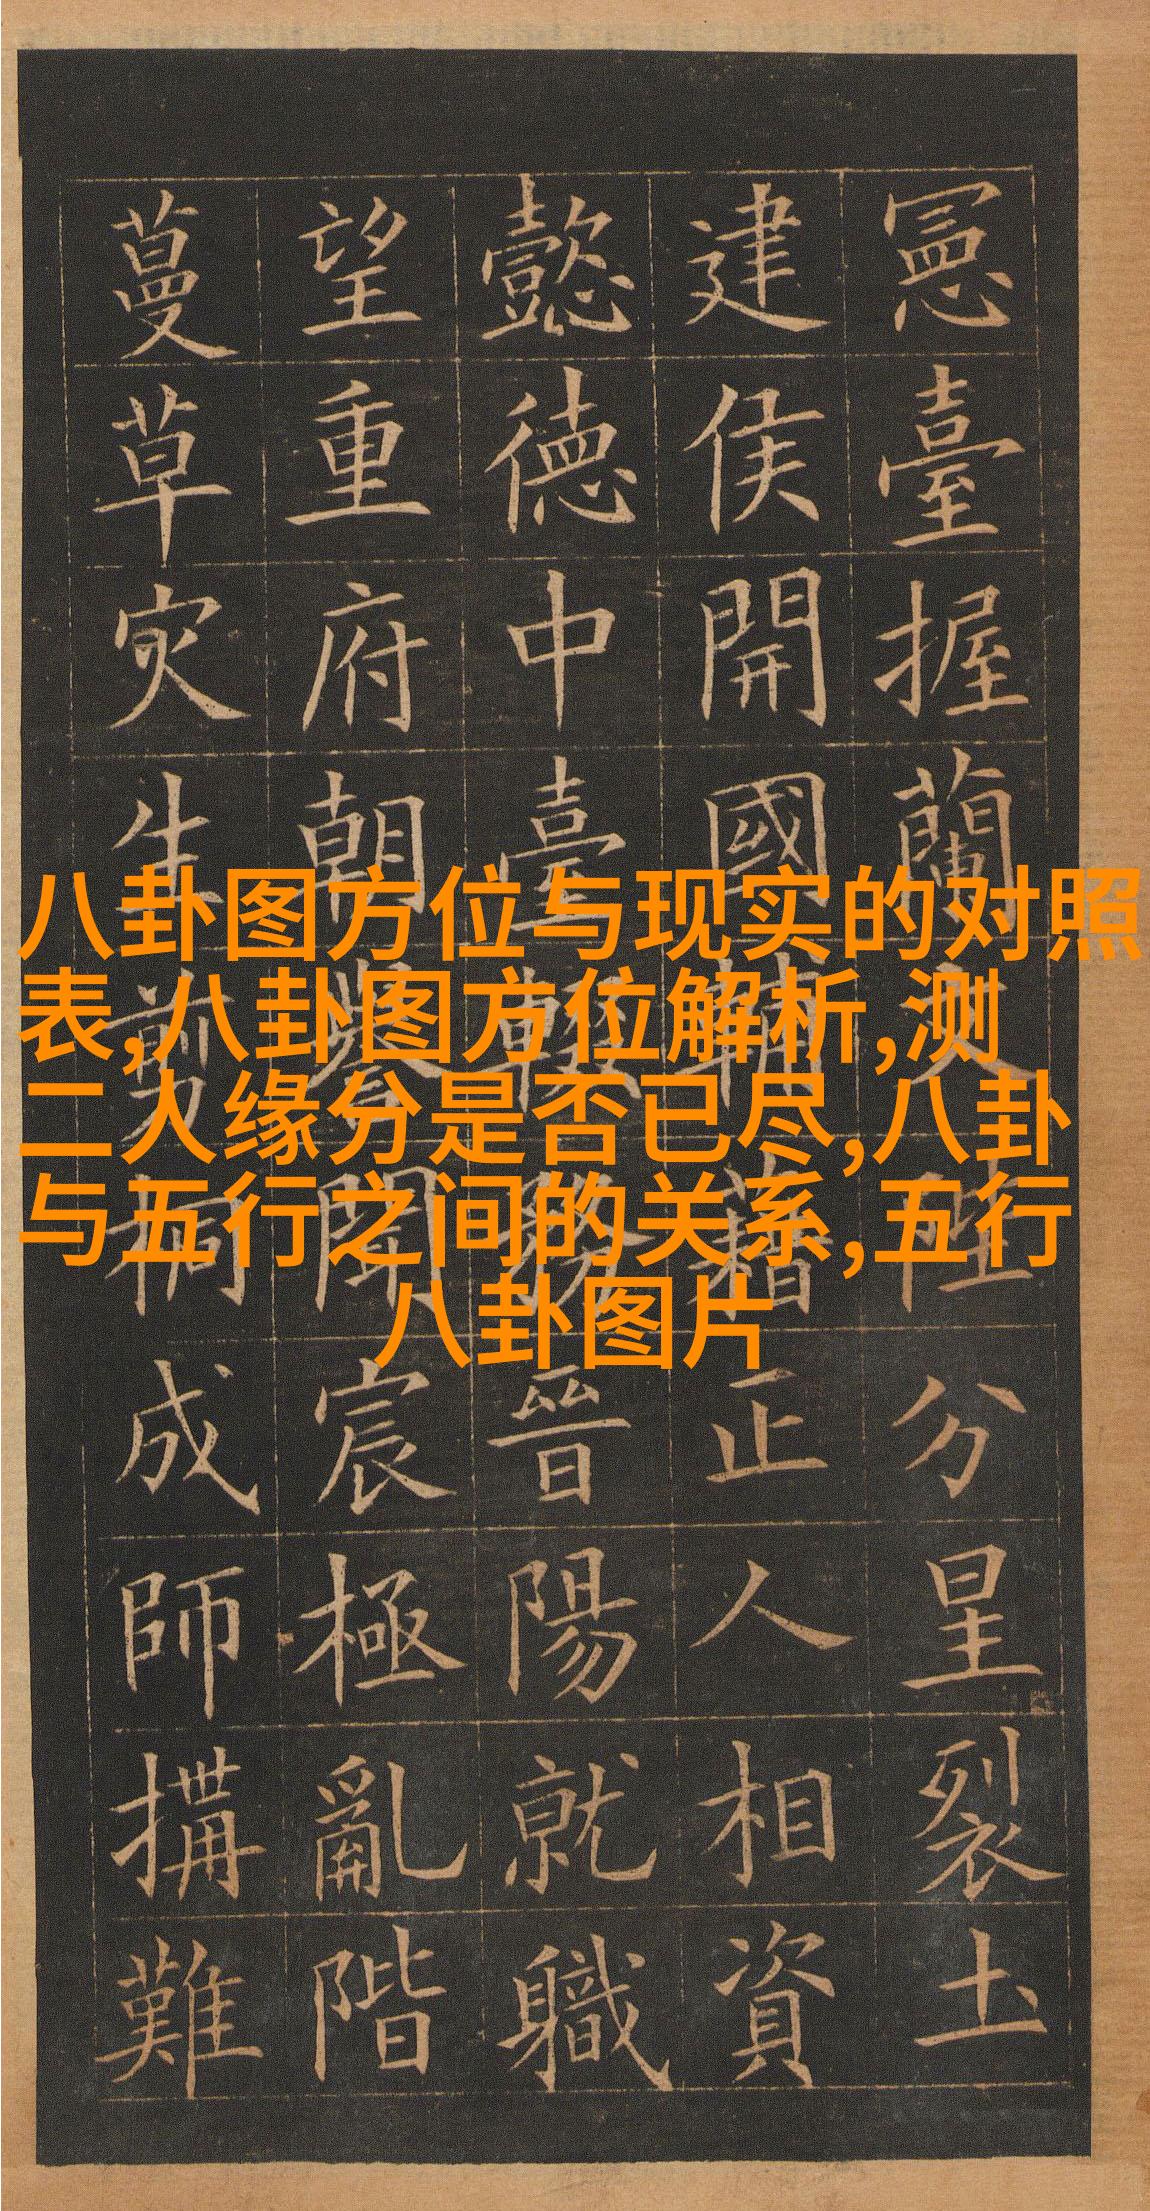 八卦图方位与现实的对照
表,八卦图方位解析,测
二人缘分是否已尽,八卦
与五行之间的关系,五行
八卦图片
憲臺握蘭文陛分星裂土
建侯開國輔藉正人相資
懿德中臺輟務晉陽就職
望重府朝譽聞宸極亂階
蔓草灾生剪桐成師搆難